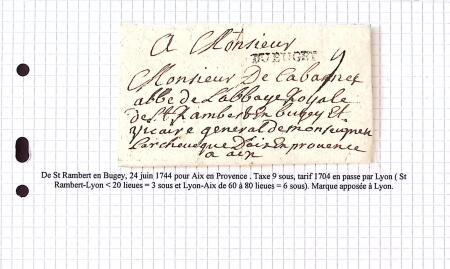 A Monsieur
DUBUGEY
9
Monsieur De Cabannes
abbé de L'abbaye Royale
de St Rambert en bugey Et
vicaire general de monseigneur
L'archeveque D'aix en provence
a aix
De St Rambert en Bugey, 24 juin 1744 pour Aix en Provence . Taxe 9 sous, tarif 1704 en passe par Lyon ( St
Rambert-Lyon < 20 lieues = 3 sous et Lyon-Aix de 60 à 80 lieues = 6 sous). Marque apposée à Lyon.